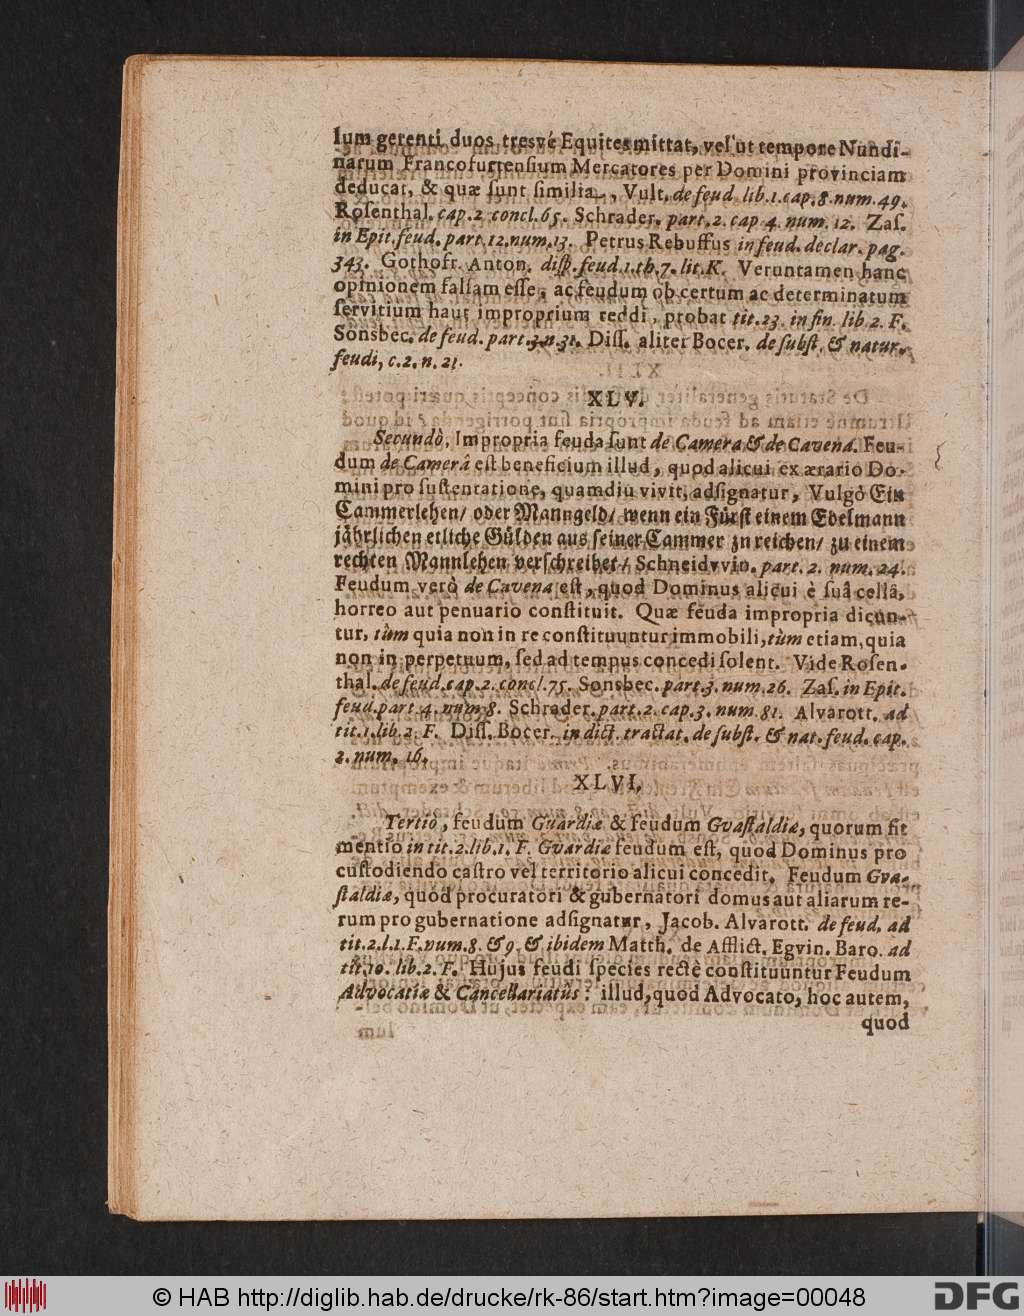 lum gerenti duos tresvé Equites mittat, vel ut tempore Nundi-
narum Francofurtensium Mercatores per Domini provinciam
deducat, & quæ ſunt ſimilia, Vult. de feud. lib. 1. cap. 8. num. 49.
Roſenthal. cap. 2. concl. 65. Schrader. part. 2. cap 4. num. 12. Zaſ.
in Epit. feud. part. 12. num. 13. Petrus Rebuffus in feud. declar. pag.
343. Gothofr. Anton. diſp. feud. 1. th. 7. lit. K. Veruntamen hanc
opinionem falſam eſſe, ac feudum ob certum ac determinatum
ſervitium haut improprium reddi, probat tit. 23. in fin. lib. 2. F.
Sonsbec. de feud. part. 3. n. 31. Diſſ. aliter Bocer. de ſubſt. & natur.
feudi, c. 2. n. 21.
XLV.
Secundò, Impropria feuda ſunt de Camera & de Cavena. Feu-
dum de Camerâ eſt beneficium illud, quod alicui ex ærario Do-
mini pro ſuſtentatione, quamdiu vivit, adſignatur, Vulgò Ein
Cammerlehen/ oder Manngeld/ wenn ein Fürſt einem Edelmann
jährlichen etliche Gülden aus ſeiner Cammer zu reichen/ zu einem
rechten Mannlehen verſchreibet/ Schneidvvin. part. 2. num. 24.
Feudum verò de Cavena eſt, quod Dominus alicui è ſuâ cellâ,
horreo aut penuario conſtituit. Quæ feuda impropria dicun-
tur, tùm quia non in re conſtituuntur immobili, tùm etiam, quia
non in perpetuum, ſed ad tempus concedi ſolent. Vide Roſen-
thal. de feud. cap. 2. concl. 75. Sonsbec. part. 3. num. 26. Zaſ. in Epit.
feud. part. 4. num. 8. Schrader. part. 2. cap. 3. num. 81. Alvarott. ad
tit. 1. lib. 2. F. Diſſ. Bocer. in dict. tractat. de ſubſt. & nat. feud. cap.
2. num. 16.
XLVI.
Tertiò, feudum Guardiæ & feudum Gvaſtaldiæ, quorum fit
mentio in tit. 2. lib. 1. F. Gvardiæ feudum eſt, quod Dominus pro
cuſtodiendo caſtro vel territorio alicui concedit. Feudum Gva-
ſtaldiæ, quod procuratori & gubernatori domus aut aliarum re-
rum pro gubernatione adſignatur, Jacob. Alvarott. de feud. ad
tit. 2. l. 1. F. num. 8. & 9. & ibidem Matth. de Afflict. Egvin. Baro. ad
tit. 10. lib. 2. F. Hujus feudi ſpecies rectè conſtituuntur Feudum
Advocatiæ & Cancellariatûs: illud, quod Advocato, hoc autem,
quod
© HAB http://diglib.hab.de/drucke/rk-86/start.htm?image=00048
DFG